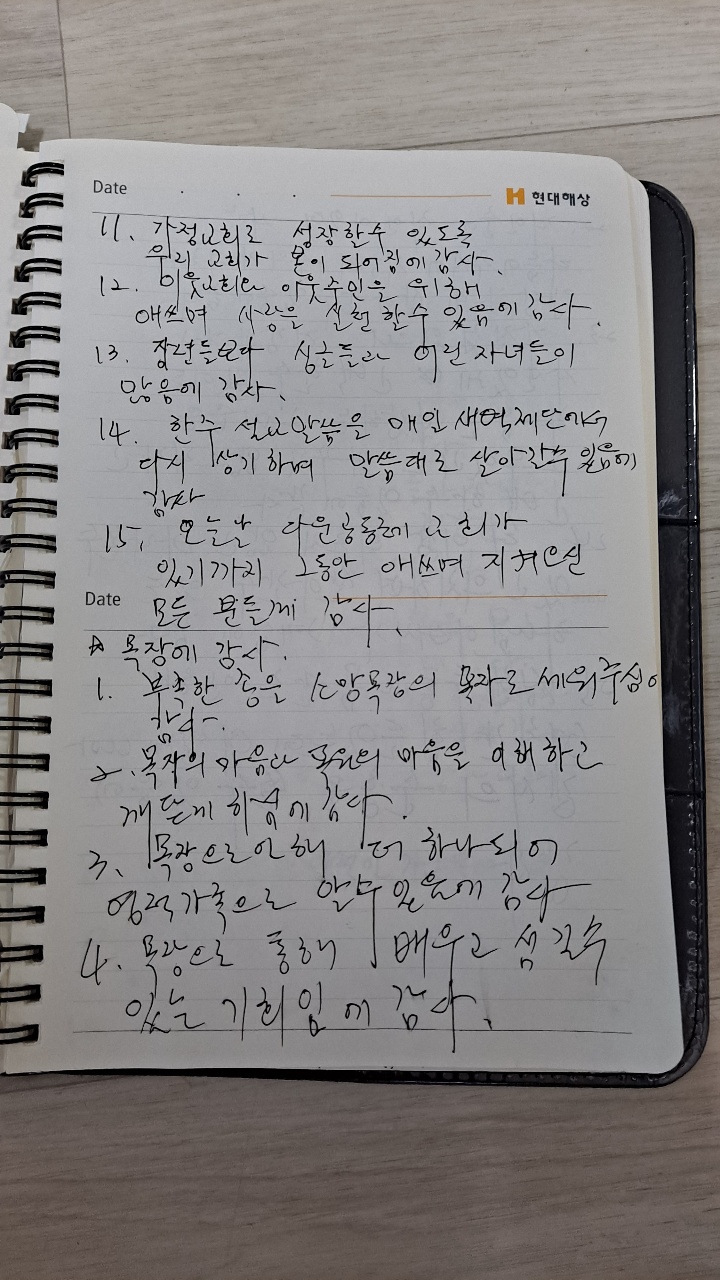 Date . . . 현대해상
11. 가정교회로 성장할수 있도록
우리 교회가 본이 되어짐에 감사.
12. 이웃교회와 이웃주민을 위해
애쓰며 사랑을 실천 할수 있음에 감사.
13. 장년들보다 싱글들과 어린 자녀들이
많음에 감사.
14. 한주 설교말씀을 매일 새벽제단에서
다시 상기하며 말씀대로 살아갈수 있음에
감사
15. 오늘날 다운공동체 교회가
있기까지 그동안 애쓰며 지켜오신
Date 모든 분들께 감사.
☆ 목장에 감사.
1. 부족한 종을 소망목장의 목자로 세워주심에
감사.
2. 목자의 마음과 목원의 마음을 이해하고
깨닫게 하심에 감사.
3. 목장으로인해 더 하나되어
영적가족으로 알수있음에 감사
4. 목장으로 통해 배우고 섬길수
있는 기회임에 감사.